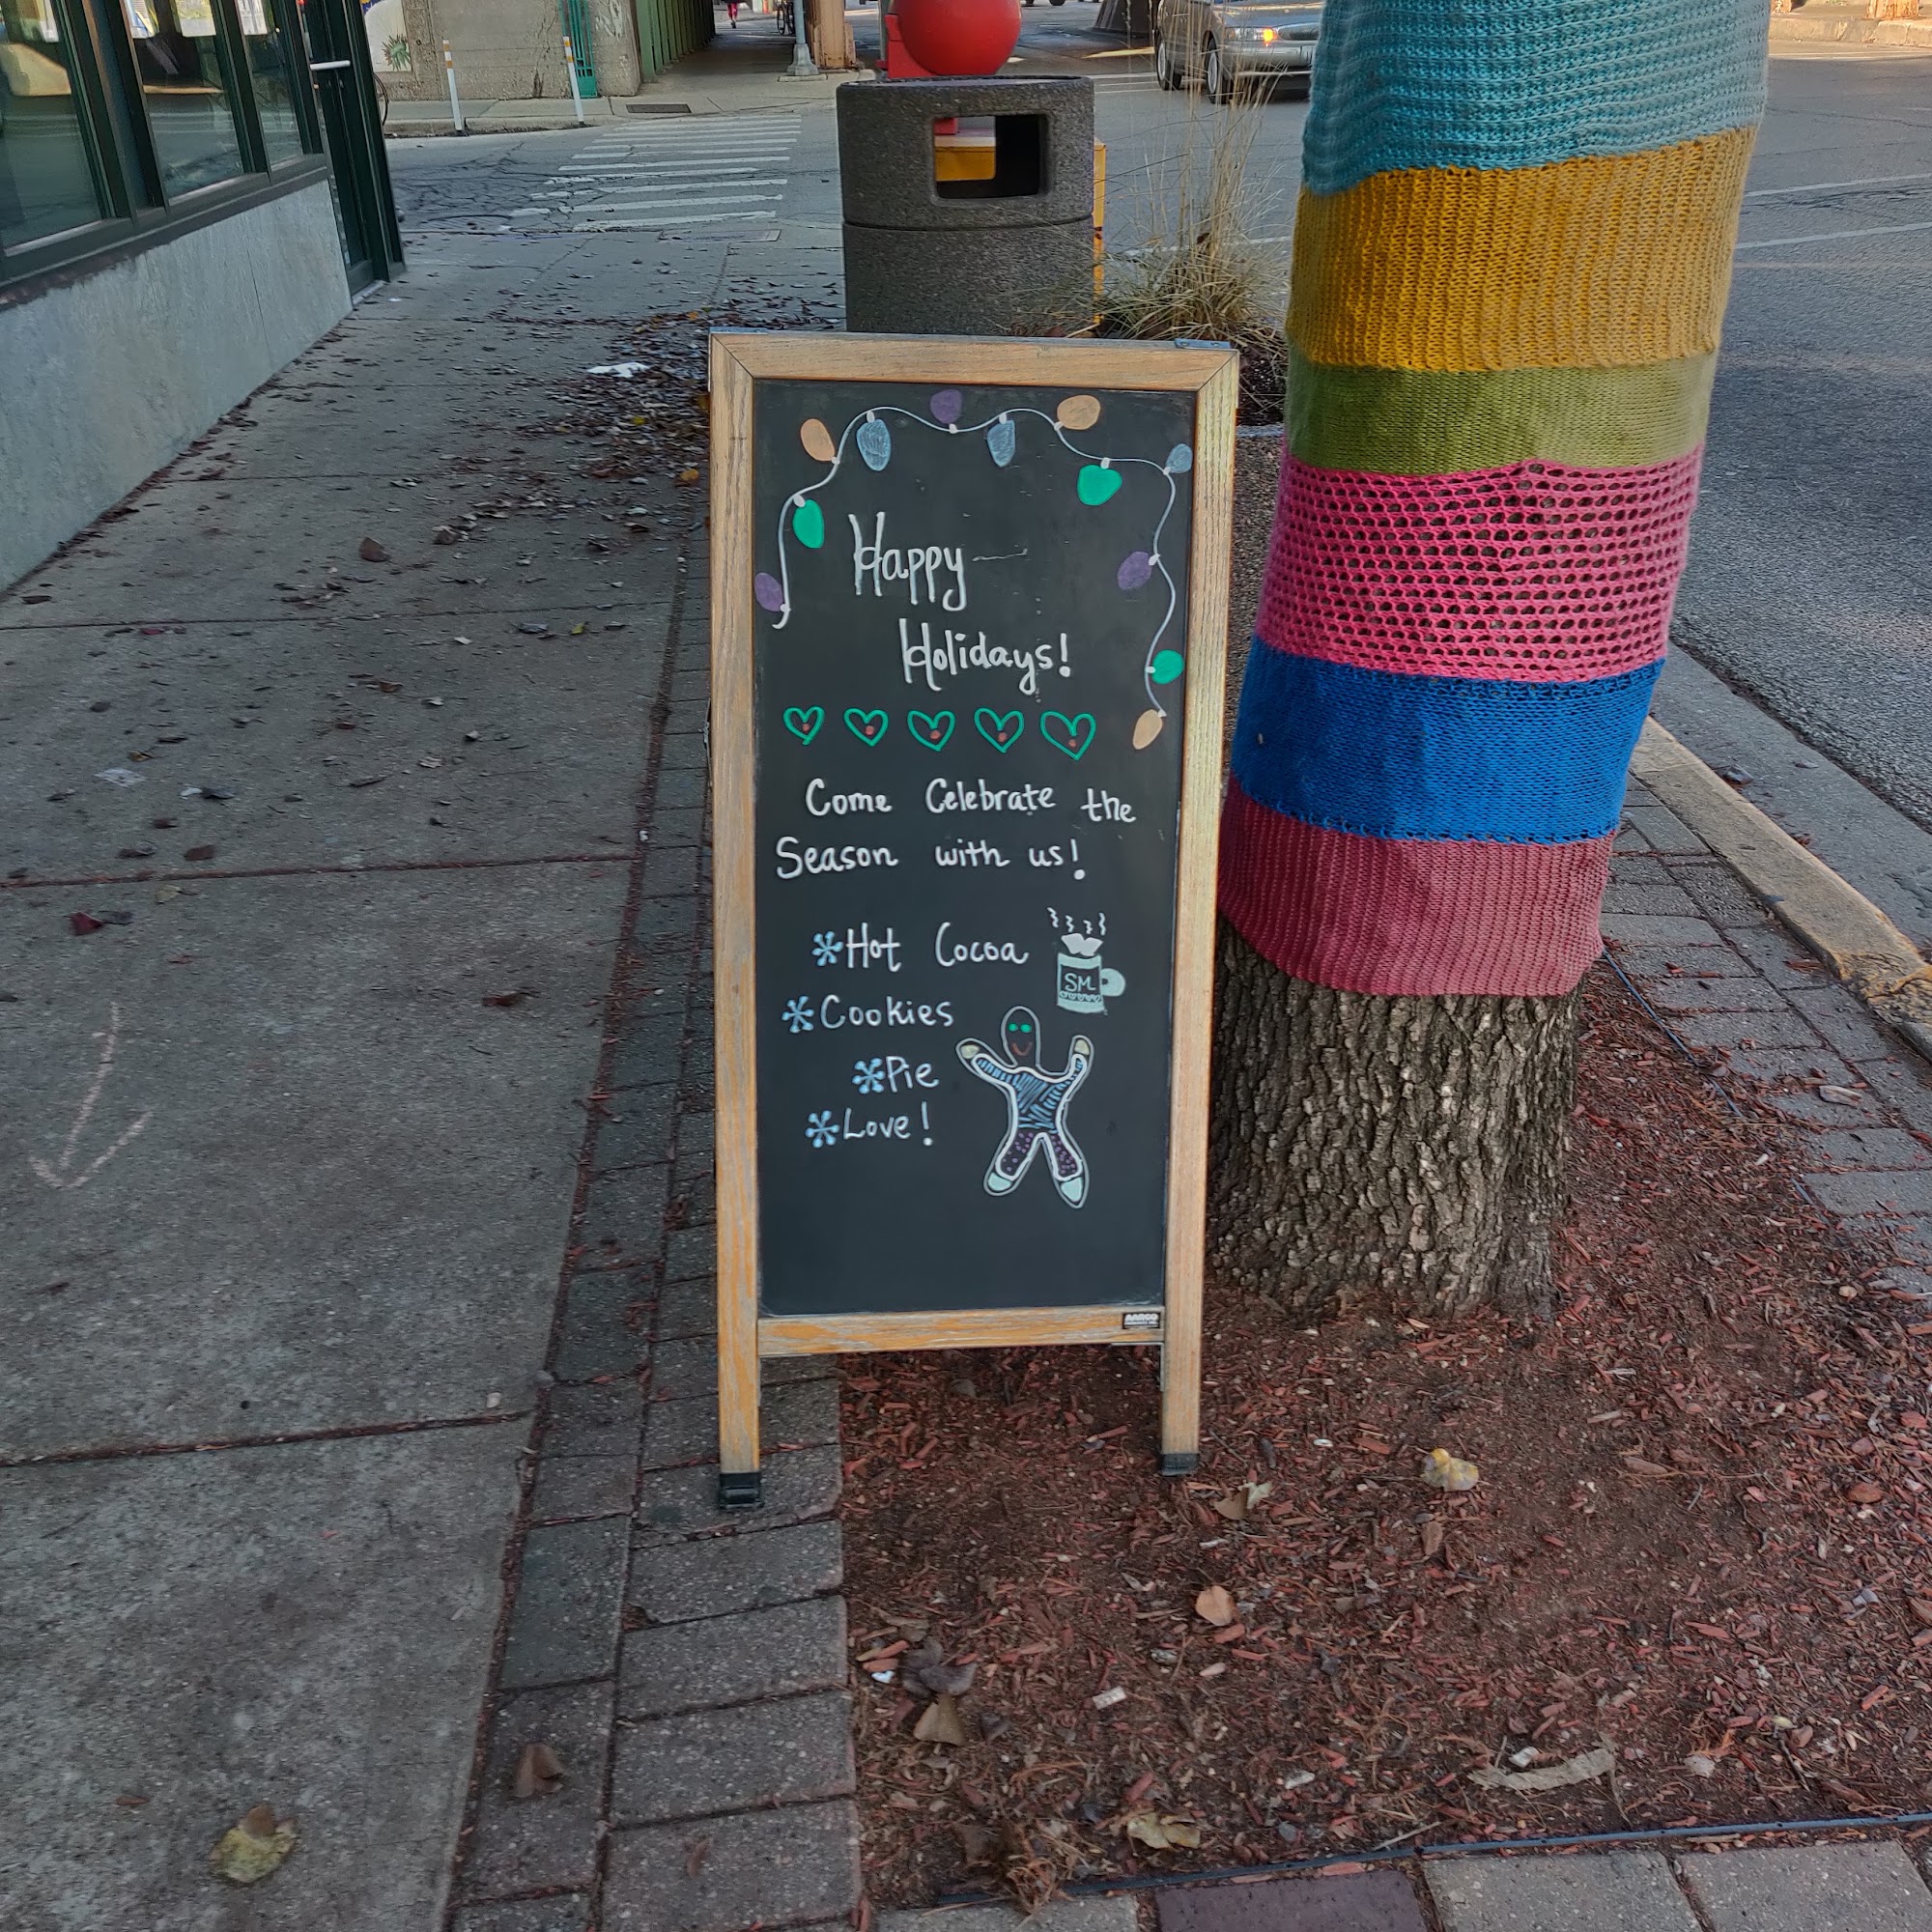 Happy
Holidays!
Come Celebrate the
Season with us!
*Hot Cocoa
SM
*Cookies
*Pie
*Love!
AARCO